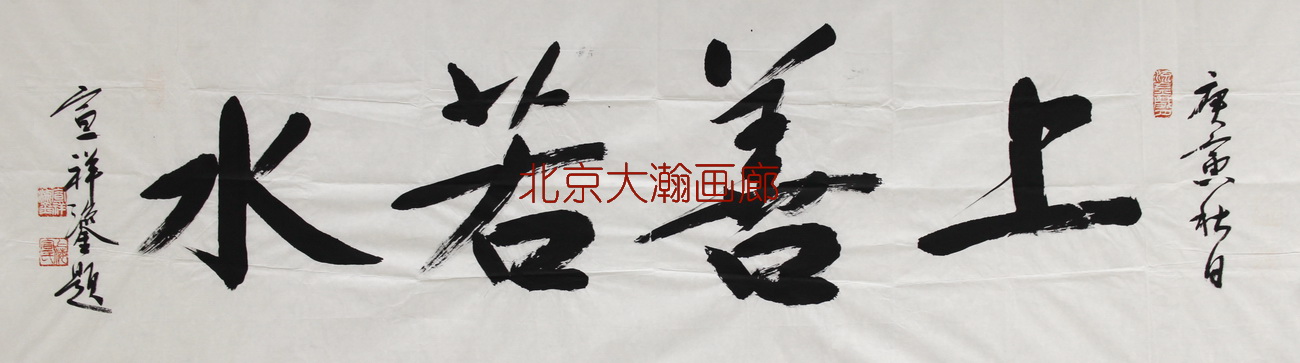 庚寅秋日
上善若水
宣祥鎏题
北京大瀚画廊